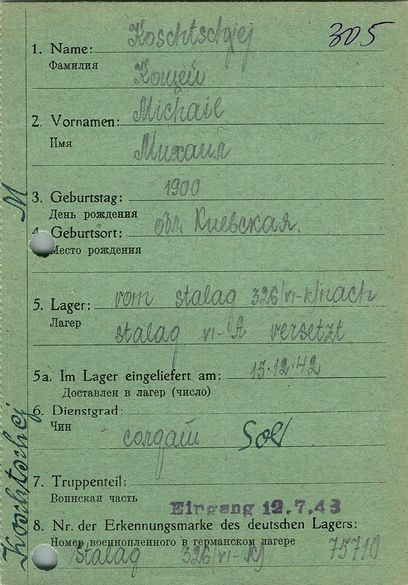 305
Koschtschjej
1. Name:
Фамилия
Кощей
Michail
2. Vornamen:
Имя
Михаил
1900
3. Geburtstag:
День рождения
4. Geburtsort: обл. Киевская.
Место рождения
5. Lager: vom stalag 326/VI-K/nach
Лагер
stalag VI-A versetzt
5a. Im Lager eingeliefert am: 15.12.42
Доставлен в лагер (число)
6. Dienstgrad:
Чин
солдат Sol
7. Truppenteil:
Воинская часть
Eingang 12.7.43
8. Nr. der Erkennungsmarke des deutschen Lagers:
Номер военнопленного в германском лагере
stalag 326/VI-K/ 75710
Koschtschej M